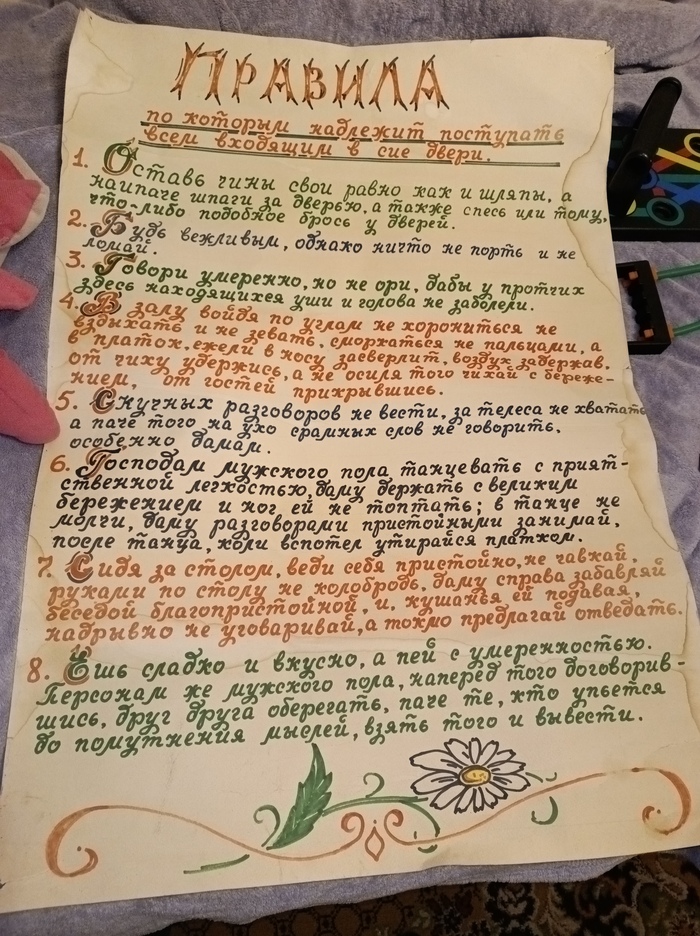 ПРАВИЛА
по которым надлежит поступать
всем входящим в сие двери.
1. Оставь чины свои равно как и шляпы, а
наипаче шпаги за дверью, а также спесь или тому,
что-либо подобное брось у дверей.
2. Будь вежливым, однако ничто не порть и не
ломай.
3. Говори умеренно, но не ори, дабы у протчих
здесь находящихся уши и голова не заболели.
4. В залу войдя по углам не хорониться не
вздыхать и не зевать, сморкаться не пальцами, а
в платок, ежели в носу засверлит, воздух задержав,
от чиху удержись, а не осиля того чихай с береже-
нием, от гостей прикрывшись.
5. Скучных разговоров не вести, за телеса не хватать
а паче того на ухо срамных слов не говорить,
особенно дамам.
6. Господам мужского пола танцевать с прият-
ственной легкостью, даму держать с великим
бережением и ног ей не топтать; в танце не
молчи, даму разговорами пристойными занимай,
после танца, коли вспотел утирайся платком.
7. Сидя за столом, веди себя пристойно, не чавкай,
руками по столу не колобродь, даму справа забавляй
беседой благопристойной, и, кушанья ей подавая,
надрывно не уговаривай, а токмо предлагай отведать.
8. Ешь сладко и вкусно, а пей с умеренностью.
Персонам же мужского пола, наперед того договорив-
шись, друг друга оберегать, паче те, кто упьется
до помутнения мыслей, взять того и вывести.